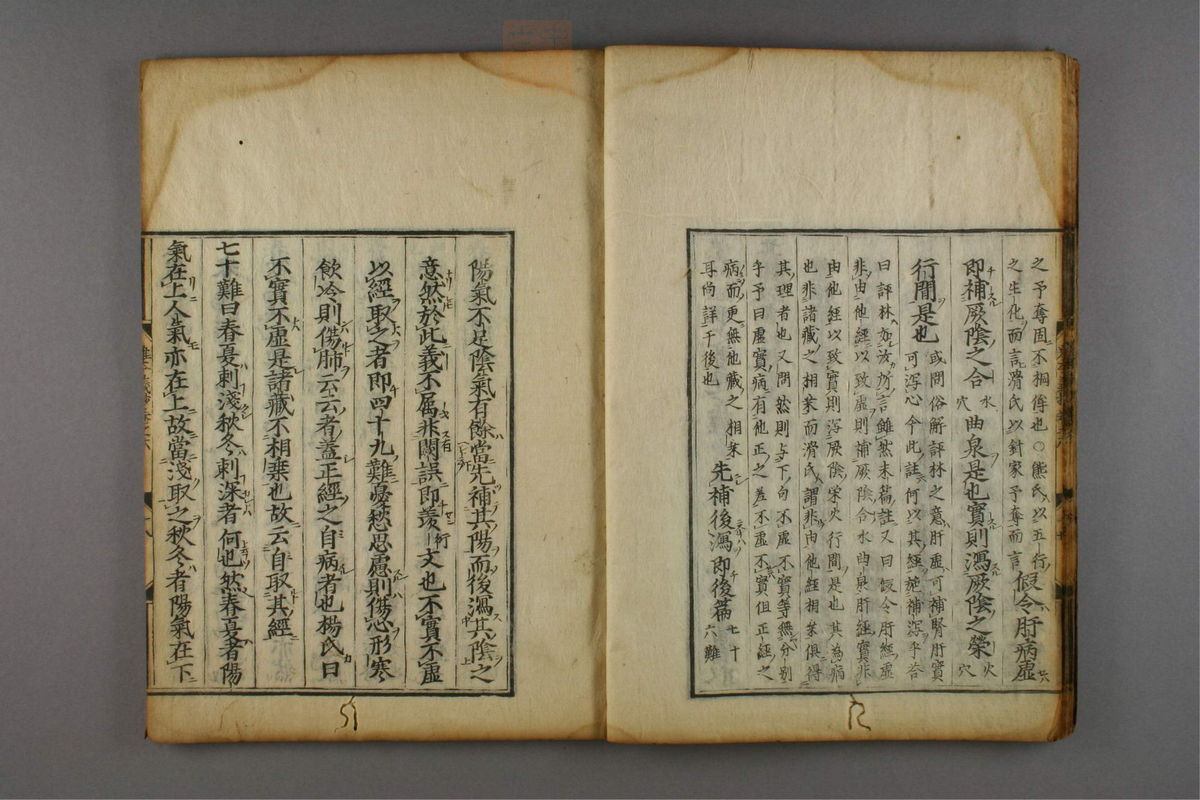 之予奪固不相侔也○熊氏以五行
之生化而言滑氏以針家予奪而言
假令肝病虛
即補厥陰之合水穴曲泉是也實則瀉厥陰之榮火穴
行間是也或問俗解評林之意肝虛可補腎肝實
可瀉心今此註何以其經施補瀉乎答
曰評林如汝所言雖然末篇註又曰假令肝經
非由他經以致虛則補厥陰合水曲泉肝經實非
由他經以致實則瀉厥陰滎火行間是也其為病
也非諸藏之相乘而滑氏謂非由他經相乘俱得
其理者也又問然則与下句不虛不實等無分別
乎予曰虛實病有他正之差不虛不實但正經之
病而更無他藏之相乘
耳尚詳于後也
先補後瀉即後篇七十六難
陽氣不足陰氣有餘當先補其陽而後瀉其陰之
意然於此義不属非闕誤即羨衍文也不實不虛
以經取之者即四十九難憂愁思慮則傷心形寒
飲冷則傷肺云云者蓋正經之自病者也楊氏曰
不實不虛是諸藏不相乘也故云自取其經
七十難曰春夏刺淺秋冬刺深者何也然春夏者陽
氣在上人氣亦在上故當淺取之秋冬者陽氣在下